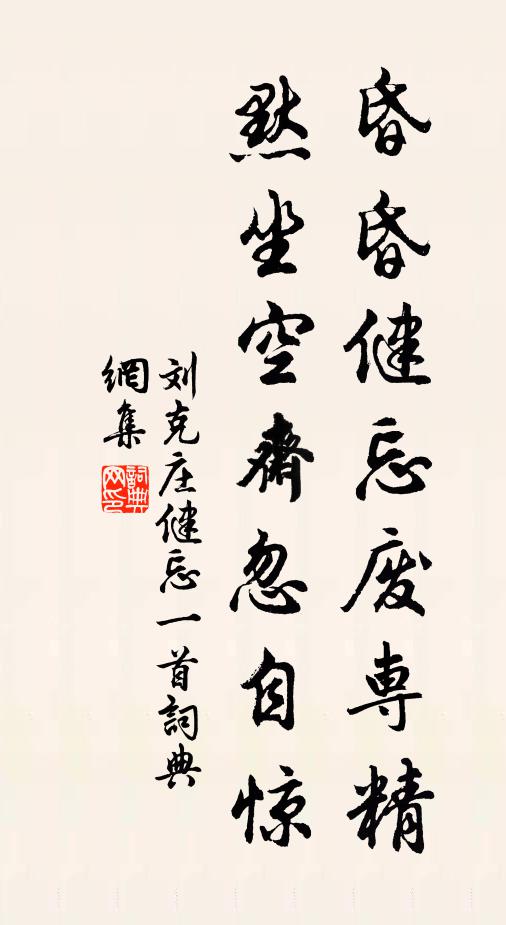 昏昏健忘废専精
默坐空齋忽自惊
刘克庄健忘一首詞典
網集
詞典網印